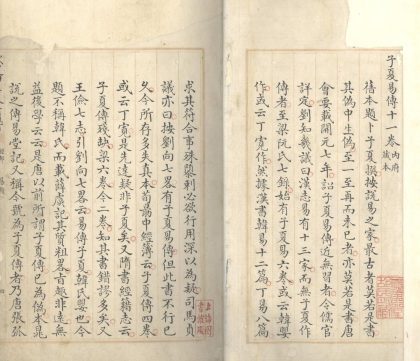 子夏易傳十一卷內府藏本
舊本題卜子夏撰按說易之家最古者莫若是書
其偽中生偽至一至再而未已者亦莫若是書唐
會要載開元七年詔子夏易傳近無習者令儒官
詳定劉知幾議曰漢志易有十三家而無子夏作
傳者至梁阮氏七錄始有子夏易六卷或云韓嬰
作或云丁寬作然據漢書韓易十二篇丁易八篇
求其符合事殊隳剌必欲行用深以為疑司馬貞
議亦曰按劉向七畧有子夏易傳但此書不行已
久今所存多失真本荀勗中經簿云子夏傳四卷
或云丁寬是先達疑非子夏矣又隋書經籍志云
子夏傳殘缺梁六卷今二卷知其書錯謬多矣又
王儉七志引劉向七畧云易傳子夏韓氏嬰也今
題不稱韓氏而載薛虞記其質粗畧旨趣非遠無
益後學云云是唐以前所謂子夏傳已為偽本晁
說之傳易堂記又稱今號為子夏傳者乃唐張弧